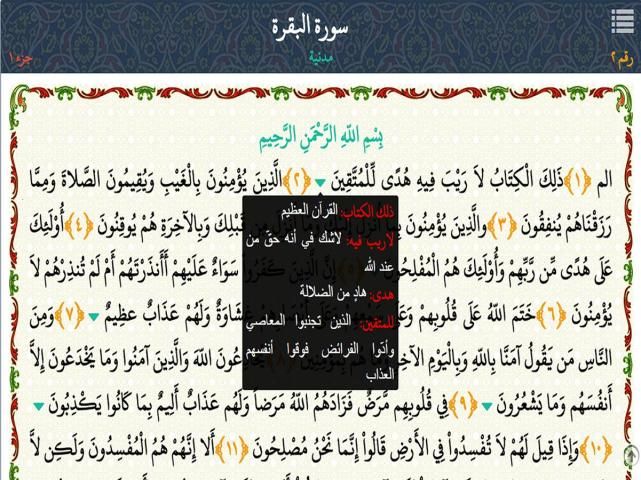 سورة البقرة
رقم ٢ مدنية جزء ١
بِسْمِ اللّهِ الرَّحْمَنِ الرَّحِيمِ
الم ﴿١﴾ ذَلِكَ الْكِتَابُ لاَ رَيْبَ فِيهِ هُدًى لِّلْمُتَّقِينَ ﴿٢﴾ الَّذِينَ يُؤْمِنُونَ بِالْغَيْبِ وَيُقِيمُونَ الصَّلاةَ وَمِمَّا
رَزَقْنَاهُمْ يُنفِقُونَ ﴿٣﴾ والَّذِينَ يُؤْمِنُونَ بِمَا أُنزِلَ إِلَيْكَ وَمَا أُنزِلَ مِن قَبْلِكَ وَبِالآخِرَةِ هُمْ يُوقِنُونَ ﴿٤﴾ أُوْلَئِكَ
عَلَى هُدًى مِّن رَّبِّهِمْ وَأُوْلَئِكَ هُمُ الْمُفْلِحُونَ إِنَّ الَّذِينَ كَفَرُواْ سَوَاءٌ عَلَيْهِمْ أَأَنذَرْتَهُمْ أَمْ لَمْ تُنذِرْهُمْ لاَ
يُؤْمِنُونَ ﴿٦﴾ خَتَمَ اللّهُ عَلَى قُلُوبِهمْ وَعَلَى غِشَاوَةٌ وَلَهُمْ عَذَابٌ عظِيمٌ ﴿٧﴾ وَمِنَ
النَّاسِ مَن يَقُولُ آمَنَّا بِاللّهِ وَبِالْيَوْمِ الآخِرِ وَمَا هُم بِمُؤْمِنِينَ يُخَادِعُونَ اللّهَ وَالَّذِينَ آمَنُوا وَمَا يَخْدَعُونَ إِلاَّ
أَنفُسَهُم وَمَا يَشْعُرُونَ ﴿٩﴾ فِي قُلُوبِهِم مَّرَضٌ فَزَادَهُمُ اللّهُ مَرَضاً وَلَهُم عَذَابٌ أَلِيمٌ بِمَا كَانُوا يَكْذِبُونَ
﴿١٠﴾ وَإِذَا قِيلَ لَهُمْ لاَ تُفْسِدُواْ فِي الأَرْضِ قَالُواْ إِنَّمَا نَحْنُ مُصْلِحُونَ ﴿١١﴾ أَلا إِنَّهُمْ هُمُ الْمُفْسِدُونَ وَلَكِن لاَّ
ذلك الكتاب: القرآن العظيم
لاريب فيه: لاشك في أنه حق من
عند الله
هدى: هادٍ من الضلالة
للمتقين: الذين تجنبوا المعاصي
وأدّوا الفرائض فوقوا أنفسهم
العذاب